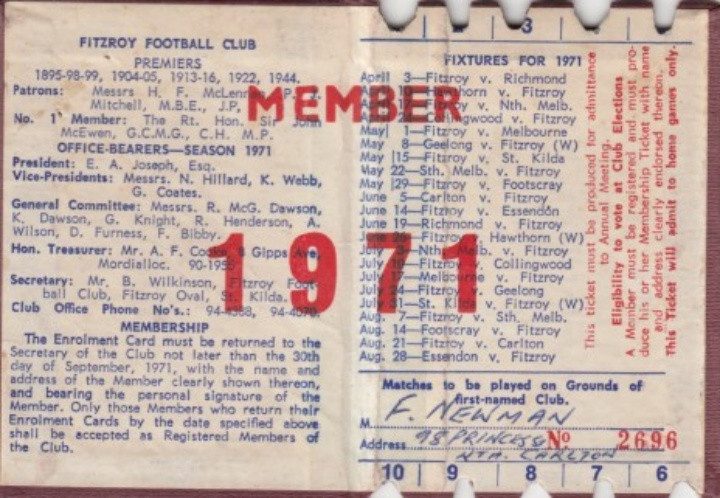 FITZROY FOOTBALL CLUB
PREMIERS
1895-98-99, 1904-05, 1913-16, 1922, 1944.
Patrons: Messrs H. F. McLennan, J.P., J.
Mitchell, M.B.E., J.P.
No. 1 Member: The Rt. Hon. Sir John
McEwen, G.C.M.G., C.H. M.P.
OFFICE-BEARERS—SEASON 1971
President: E. A. Joseph, Esq.
Vice-Presidents: Messrs. N. Hillard, K. Webb,
G. Coates.
General Committee: Messrs. R. McG. Dawson,
K. Dawson, G. Knight, R. Henderson, A.
Wilson, D. Furness, F. Bibby.
Hon. Treasurer: Mr. A. F. 8 Gipps Ave,
Mordialloc.
Secretary: Mr. B. Wilkinson, Fitzroy Foot-
ball Club, Fitzroy Oval, St. Kilda.
Club Office Phone No's.:
MEMBERSHIP
The Enrolment Card must be returned to the
Secretary of the Club not later than the 30th
day of September, 1971, with the name and
address of the Member clearly shown thereon,
and bearing the personal signature of the
Member. Only those Members who return their
Enrolment Cards by the date specified above
shall be accepted as Registered Members of
the Club.
MEMBER
1971
2 3 4
FIXTURES FOR 1971
April 3—Fitzroy v. Richmond
Hawthorn v. Fitzroy
Fitzroy v. Nth. Melb.
Collingwood v. Fitzroy
May 1—Fitzroy v. Melbourne
May 8—Geelong v. Fitzroy (W)
May 15—Fitzroy v. St. Kilda
May 22—Sth. Melb. v. Fitzroy
May 29—Fitzroy v. Footscray
June 5—Carlton v. Fitzroy
June 14—Fitzroy v. Essendon
June 19—Richmond v. Fitzroy
June 26—Fitzroy v. Hawthorn (W)
July Nth. Melb. v. Fitzroy
July Fitzroy v. Collingwood
July 17—Melbourne v. Fitzroy
July 24—Fitzroy v. Geelong
July 31—St. Kilda v. Fitzroy (W)
Aug. 7—Fitzroy v. Sth. Melb.
Aug. 14—Footscray v. Fitzroy
Aug. 21—Fitzroy v. Carlton
Aug. 28—Essendon v. Fitzroy
This ticket must be produced for admittance
to Annual Meeting.
Eligibility to vote at Club Elections
A Member must be registered and must pro-
duce his or her Membership Ticket with name
and address clearly endorsed thereon.
This Ticket will admit to home games only.
Matches to be played on Grounds of
first-named Club.
M. F. NEWMAN
Address 98 PRINCESS No 2696
NTH. CARLTON
10 9 8 7 6